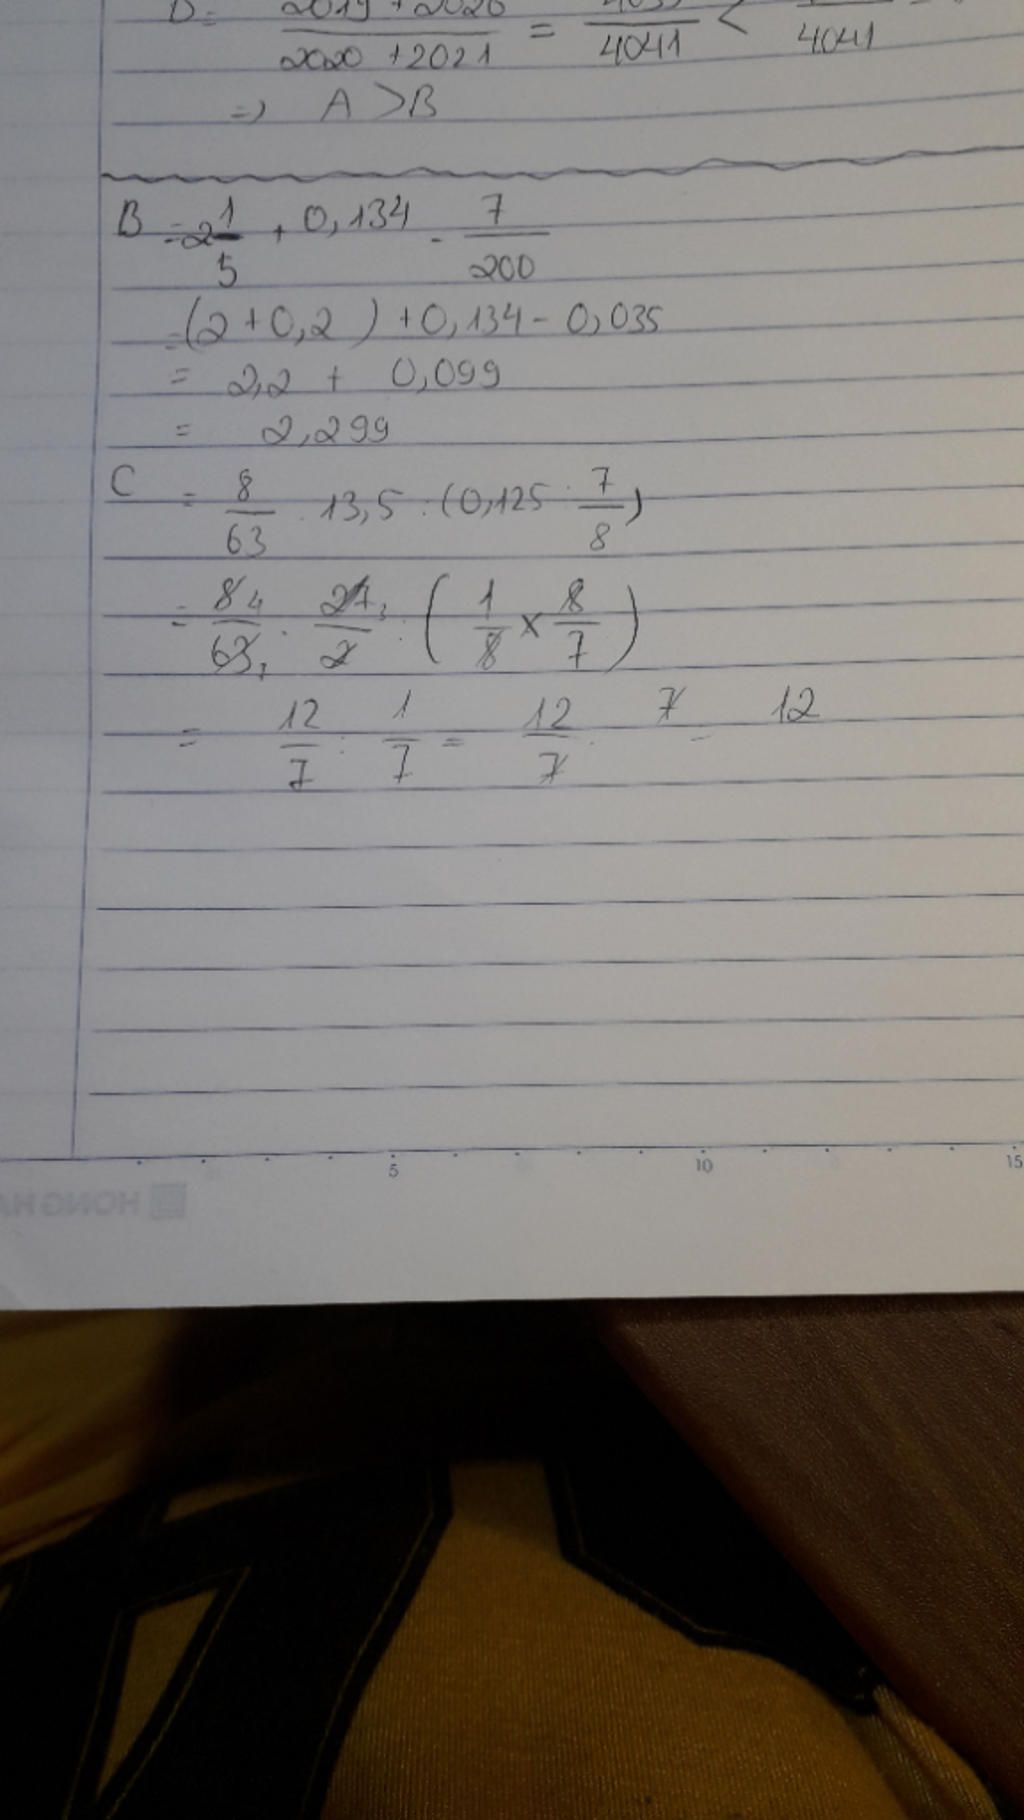 B = 2019 + 2020 / 2020 + 2021 = / 4041 < / 4041
=> A > B
B = 2 1/5 + 0,134 - 7/200
= (2 + 0,2) + 0,134 - 0,035
= 2,2 + 0,099
= 2,299
C = 8/63 . 13,5 : (0,125 : 7/8)
= 8 4/63 7 . 27 3/2 : (1/8 x 8/7)
= 12/7 : 1/7 = 12/7 . 7 = 12
5 10 15
HONG HA